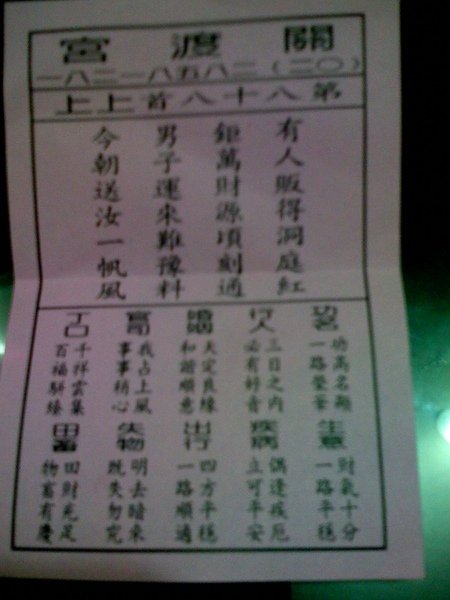 關渡宮
(〇二)二八五八一二八一
第八十八首上上
有人販得洞庭紅
鉅萬財源頃刻通
男子運來難豫料
今朝送汝一帆風
功名
功高名顯
一路榮華
行人
三日之內
必有好音
婚姻
天定良緣
和諧順意
官司
我占上風
事事稱心
丁口
千祥雲集
百福駢臻
生意
財氣十分
一路平穩
疾病
偶逢疾厄
立可平安
出行
四方平穩
一路順適
失物
明去暗來
既失勿究
田畜
田財充足
物畜有慶